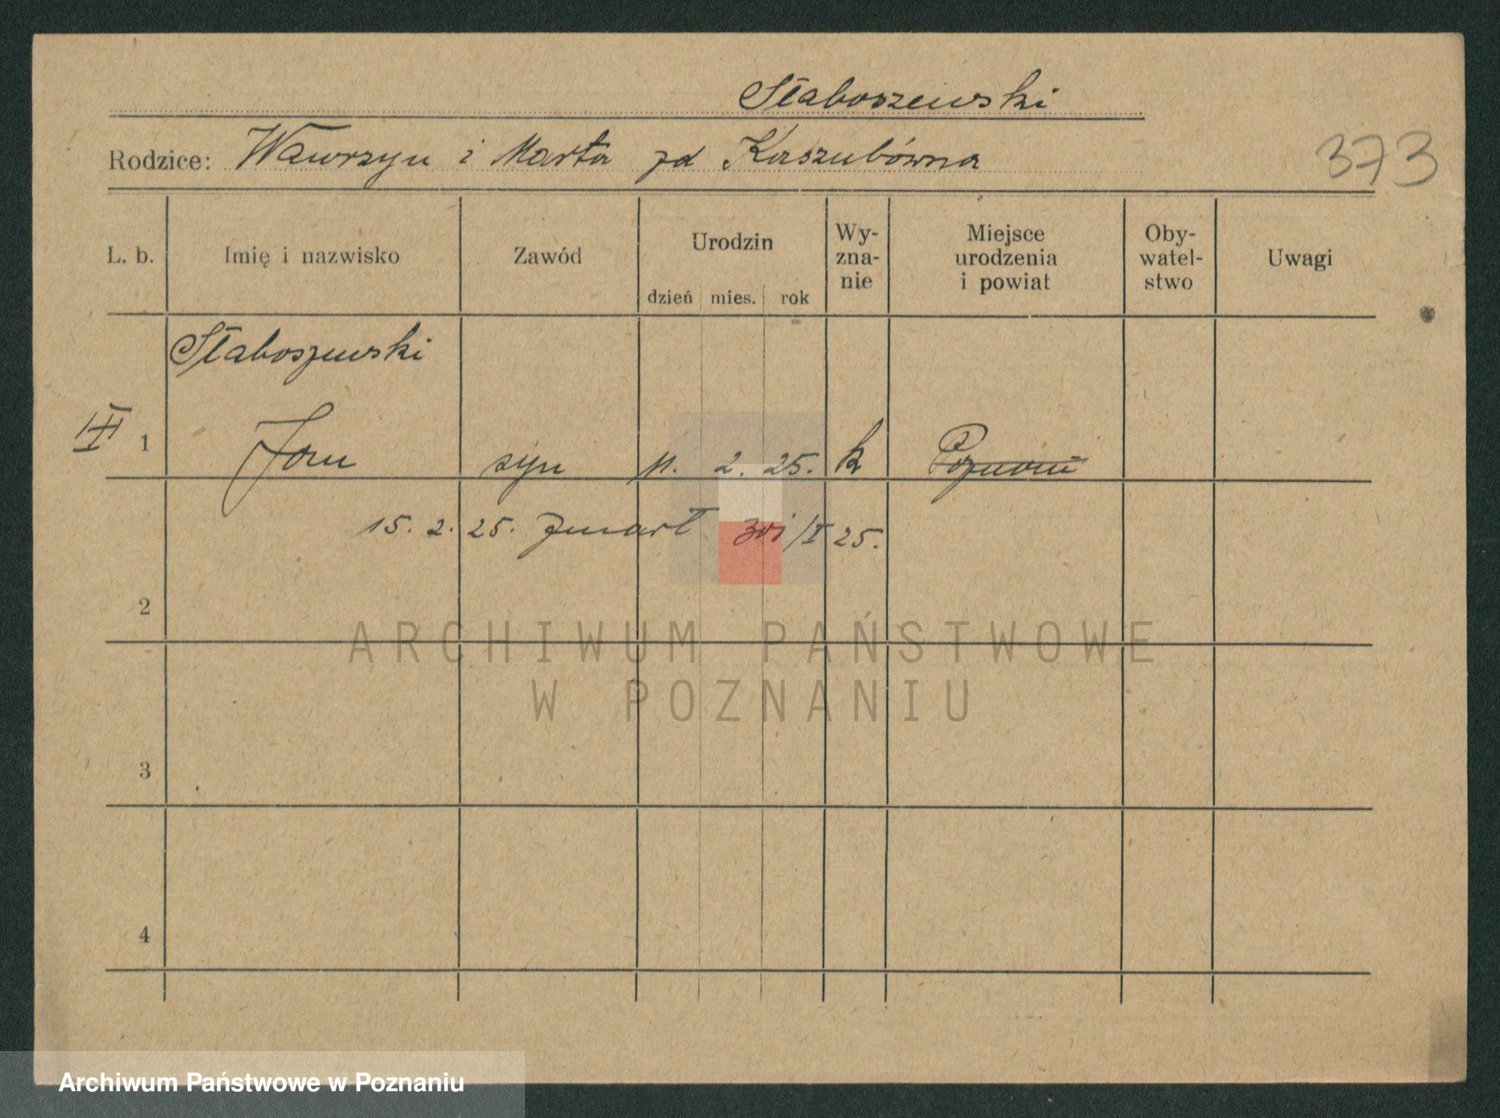 Słaboszewski
Rodzice: Wawrzyn i Marta zd Kaszubówna
373
L. b. Imię i nazwisko Zawód Urodzin Wy- Miejsce Oby- Uwagi
zna- urodzenia watel-
dzień mies. rok nie i powiat stwo
Słaboszewski
1 Jan syn 11. 2. 25. k Poznań
15. 2. 25. zmarł 25.
2
ARCHIWUM PAŃSTWOWE
W POZNANIU
3
4
Archiwum Państwowe w Poznaniu